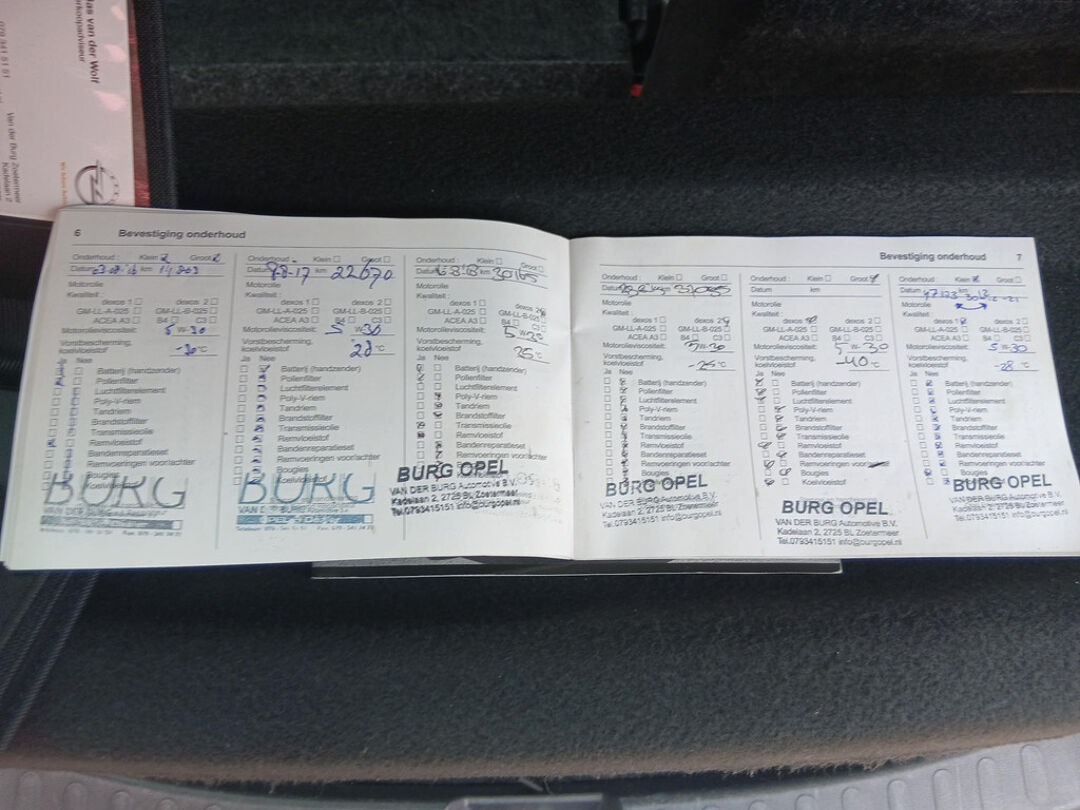 las van der Wolf
rkoopadviseur
079 341 51 51
Van der Burg Zoetermeer
Kadelaan 2
6 Bevestiging onderhoud
Onderhoud : Klein Groot
Datum 03-08-16 km
Motorolie
Kwaliteit :
dexos 1 dexos 2
GM-LL-A-025 GM-LL-B-025
ACEA A3 B4 C3
Motorolieviscositeit: 5 W-30
Vorstbescherming,
koelvloeistof -30 °C
Ja Nee
Batterij (handzender)
Pollenfilter
Luchtfilterelement
Poly-V-riem
Tandriem
Brandstoffilter
Transmissieolie
Remvloeistof
Bandenreparatieset
Remvoeringen voor/achter
Bougies
Koelvloeistof
BURG
Onderhoud : Klein Groot
Datum 9-8-17 km 22670
Motorolie
Kwaliteit :
dexos 1 dexos 2
GM-LL-A-025 GM-LL-B-025
ACEA A3 B4 C3
Motorolieviscositeit: 5 W-30
Vorstbescherming,
koelvloeistof 28 °C
Ja Nee
Batterij (handzender)
Pollenfilter
Luchtfilterelement
Poly-V-riem
Tandriem
Brandstoffilter
Transmissieolie
Remvloeistof
Bandenreparatieset
Remvoeringen voor/achter
Bougies
Koelvloeistof
BURG
VAN DER BURG
Onderhoud : Klein Groot
Datum km
Motorolie
Kwaliteit :
dexos 1 dexos 2
GM-LL-A-025 GM-LL-B-025
ACEA A3 B4 C3
Motorolieviscositeit: 5 W-30
Vorstbescherming,
koelvloeistof 25 °C
Ja Nee
Batterij (handzender)
Pollenfilter
Luchtfilterelement
Poly-V-riem
Tandriem
Brandstoffilter
Transmissieolie
Remvloeistof
Bandenreparatieset
Remvoeringen voor/achter
BURG OPEL
VAN DER BURG Automotive B.V.
Kadelaan 2, 2725 BL Zoetermeer
Tel.0793415151 info@burgopel.nl
Bevestiging onderhoud 7
Onderhoud : Klein Groot
Datum km
Motorolie
Kwaliteit :
dexos 1 dexos 2
GM-LL-A-025 GM-LL-B-025
ACEA A3 B4 C3
Motorolieviscositeit: 5W-30
Vorstbescherming,
koelvloeistof -25 °C
Ja Nee
Batterij (handzender)
Pollenfilter
Luchtfilterelement
Poly-V-riem
Tandriem
Brandstoffilter
Transmissieolie
Remvloeistof
Bandenreparatieset
Remvoeringen voor/achter
Bougies
BURG OPEL
VAN DER BURG Automotive B.V.
Kadelaan 2, 2725 BL Zoetermeer
Tel.0793415151 info@burgopel.nl
Onderhoud : Klein Groot
Datum km
Motorolie
Kwaliteit :
dexos 1 dexos 2
GM-LL-A-025 GM-LL-B-025
ACEA A3 B4 C3
Motorolieviscositeit: 5 W-30
Vorstbescherming,
koelvloeistof -40 °C
Ja Nee
Batterij (handzender)
Pollenfilter
Luchtfilterelement
Poly-V-riem
Tandriem
Brandstoffilter
Transmissieolie
Remvloeistof
Bandenreparatieset
Remvoeringen voor/achter
Bougies
Koelvloeistof
BURG OPEL
VAN DER BURG Automotive B.V.
Kadelaan 2, 2725 BL Zoetermeer
Tel.0793415151 info@burgopel.nl
Onderhoud : Klein Groot
Datum km
Motorolie
Kwaliteit :
dexos 1 dexos 2
GM-LL-A-025 GM-LL-B-025
ACEA A3 B4 C3
Motorolieviscositeit: 5 W-30
Vorstbescherming,
koelvloeistof -28 °C
Ja Nee
Batterij (handzender)
Pollenfilter
Luchtfilterelement
Poly-V-riem
Tandriem
Brandstoffilter
Transmissieolie
Remvloeistof
Bandenreparatieset
Remvoeringen voor/achter
Bougies
BURG OPEL
VAN DER BURG Automotive B.V.
Kadelaan 2, 2725 BL Zoetermeer
Tel.0793415151 info@burgopel.nl